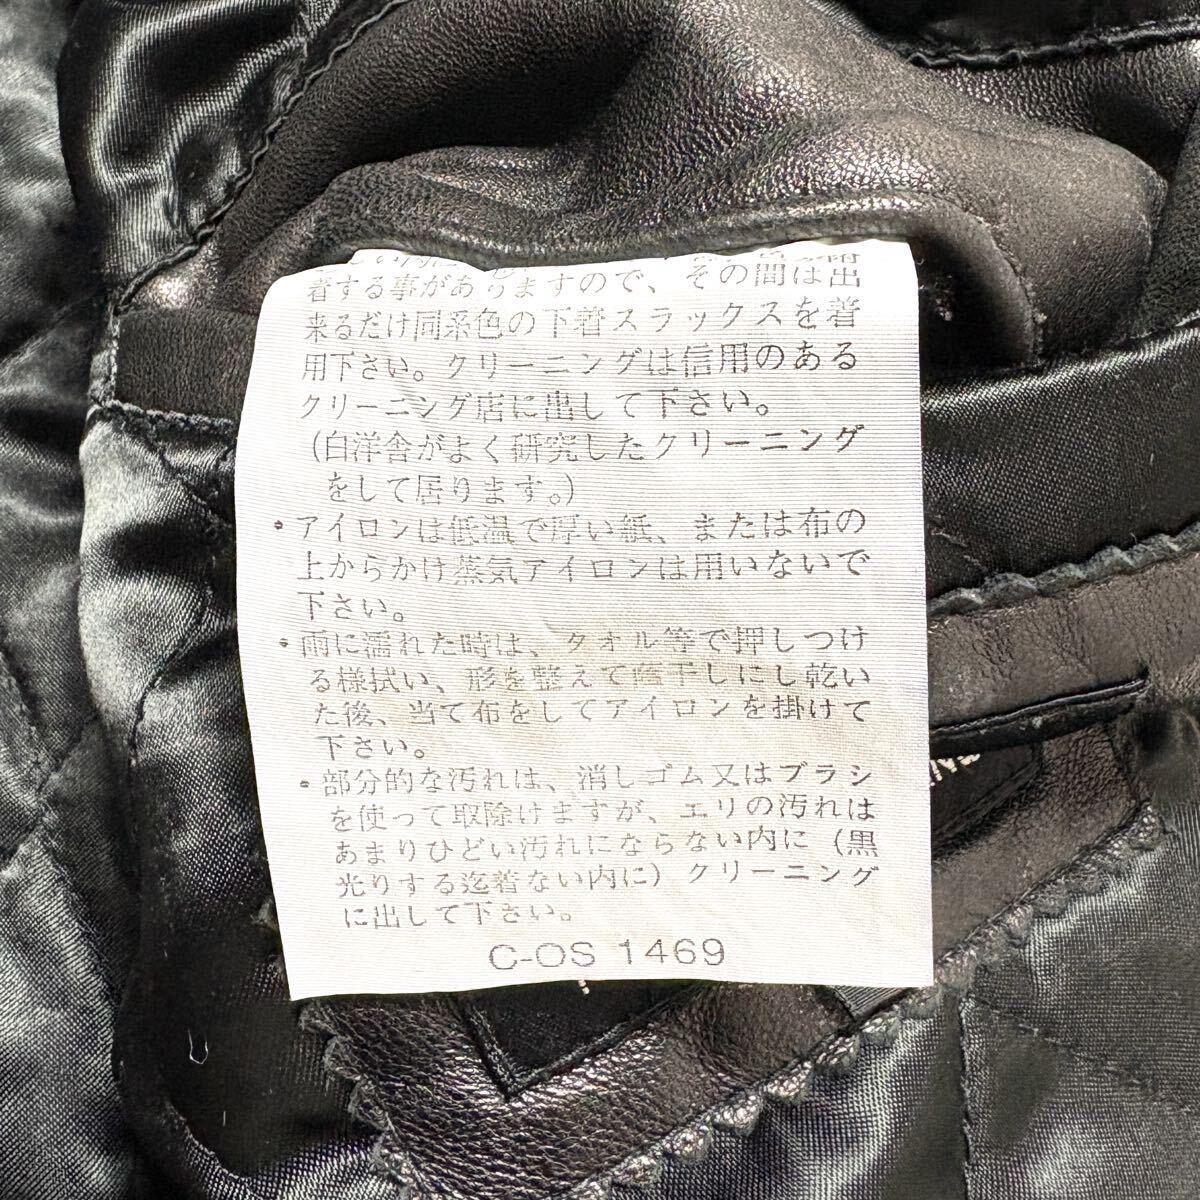 着する事がありますので、その間は出
来るだけ同系色の下着スラックスを着
用下さい。クリーニングは信用のある
クリーニング店に出して下さい。
(白洋舎がよく研究したクリーニング
をして居ります。)
・アイロンは低温で厚い紙、または布の
上からかけ蒸気アイロンは用いないで
下さい。
・雨に濡れた時は、タオル等で押しつけ
る様拭い、形を整えて蔭干しにし乾い
た後、当て布をしてアイロンを掛けて
下さい。
・部分的な汚れは、消しゴム又はブラシ
を使って取除けますが、エリの汚れは
あまりひどい汚れにならない内に(黒
光りする迄着ない内に)クリーニング
に出して下さい。
C-OS 1469